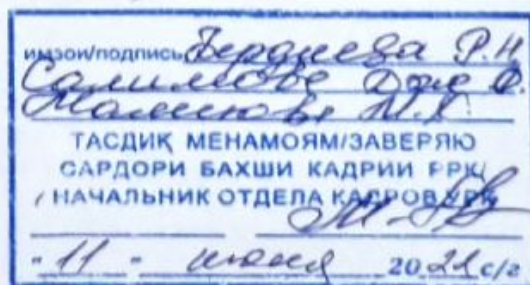 имзои/подпись Бердиева Р.Н.
Салимова Дж. Ф.
М.Х.
ТАСДИҚ МЕНАМОЯМ/ЗАВЕРЯЮ
САРДОРИ БАХШИ КАДРИИ РРК/
НАЧАЛЬНИК ОТДЕЛА КАДРОВ УРК
"11" июня 2021 с/г